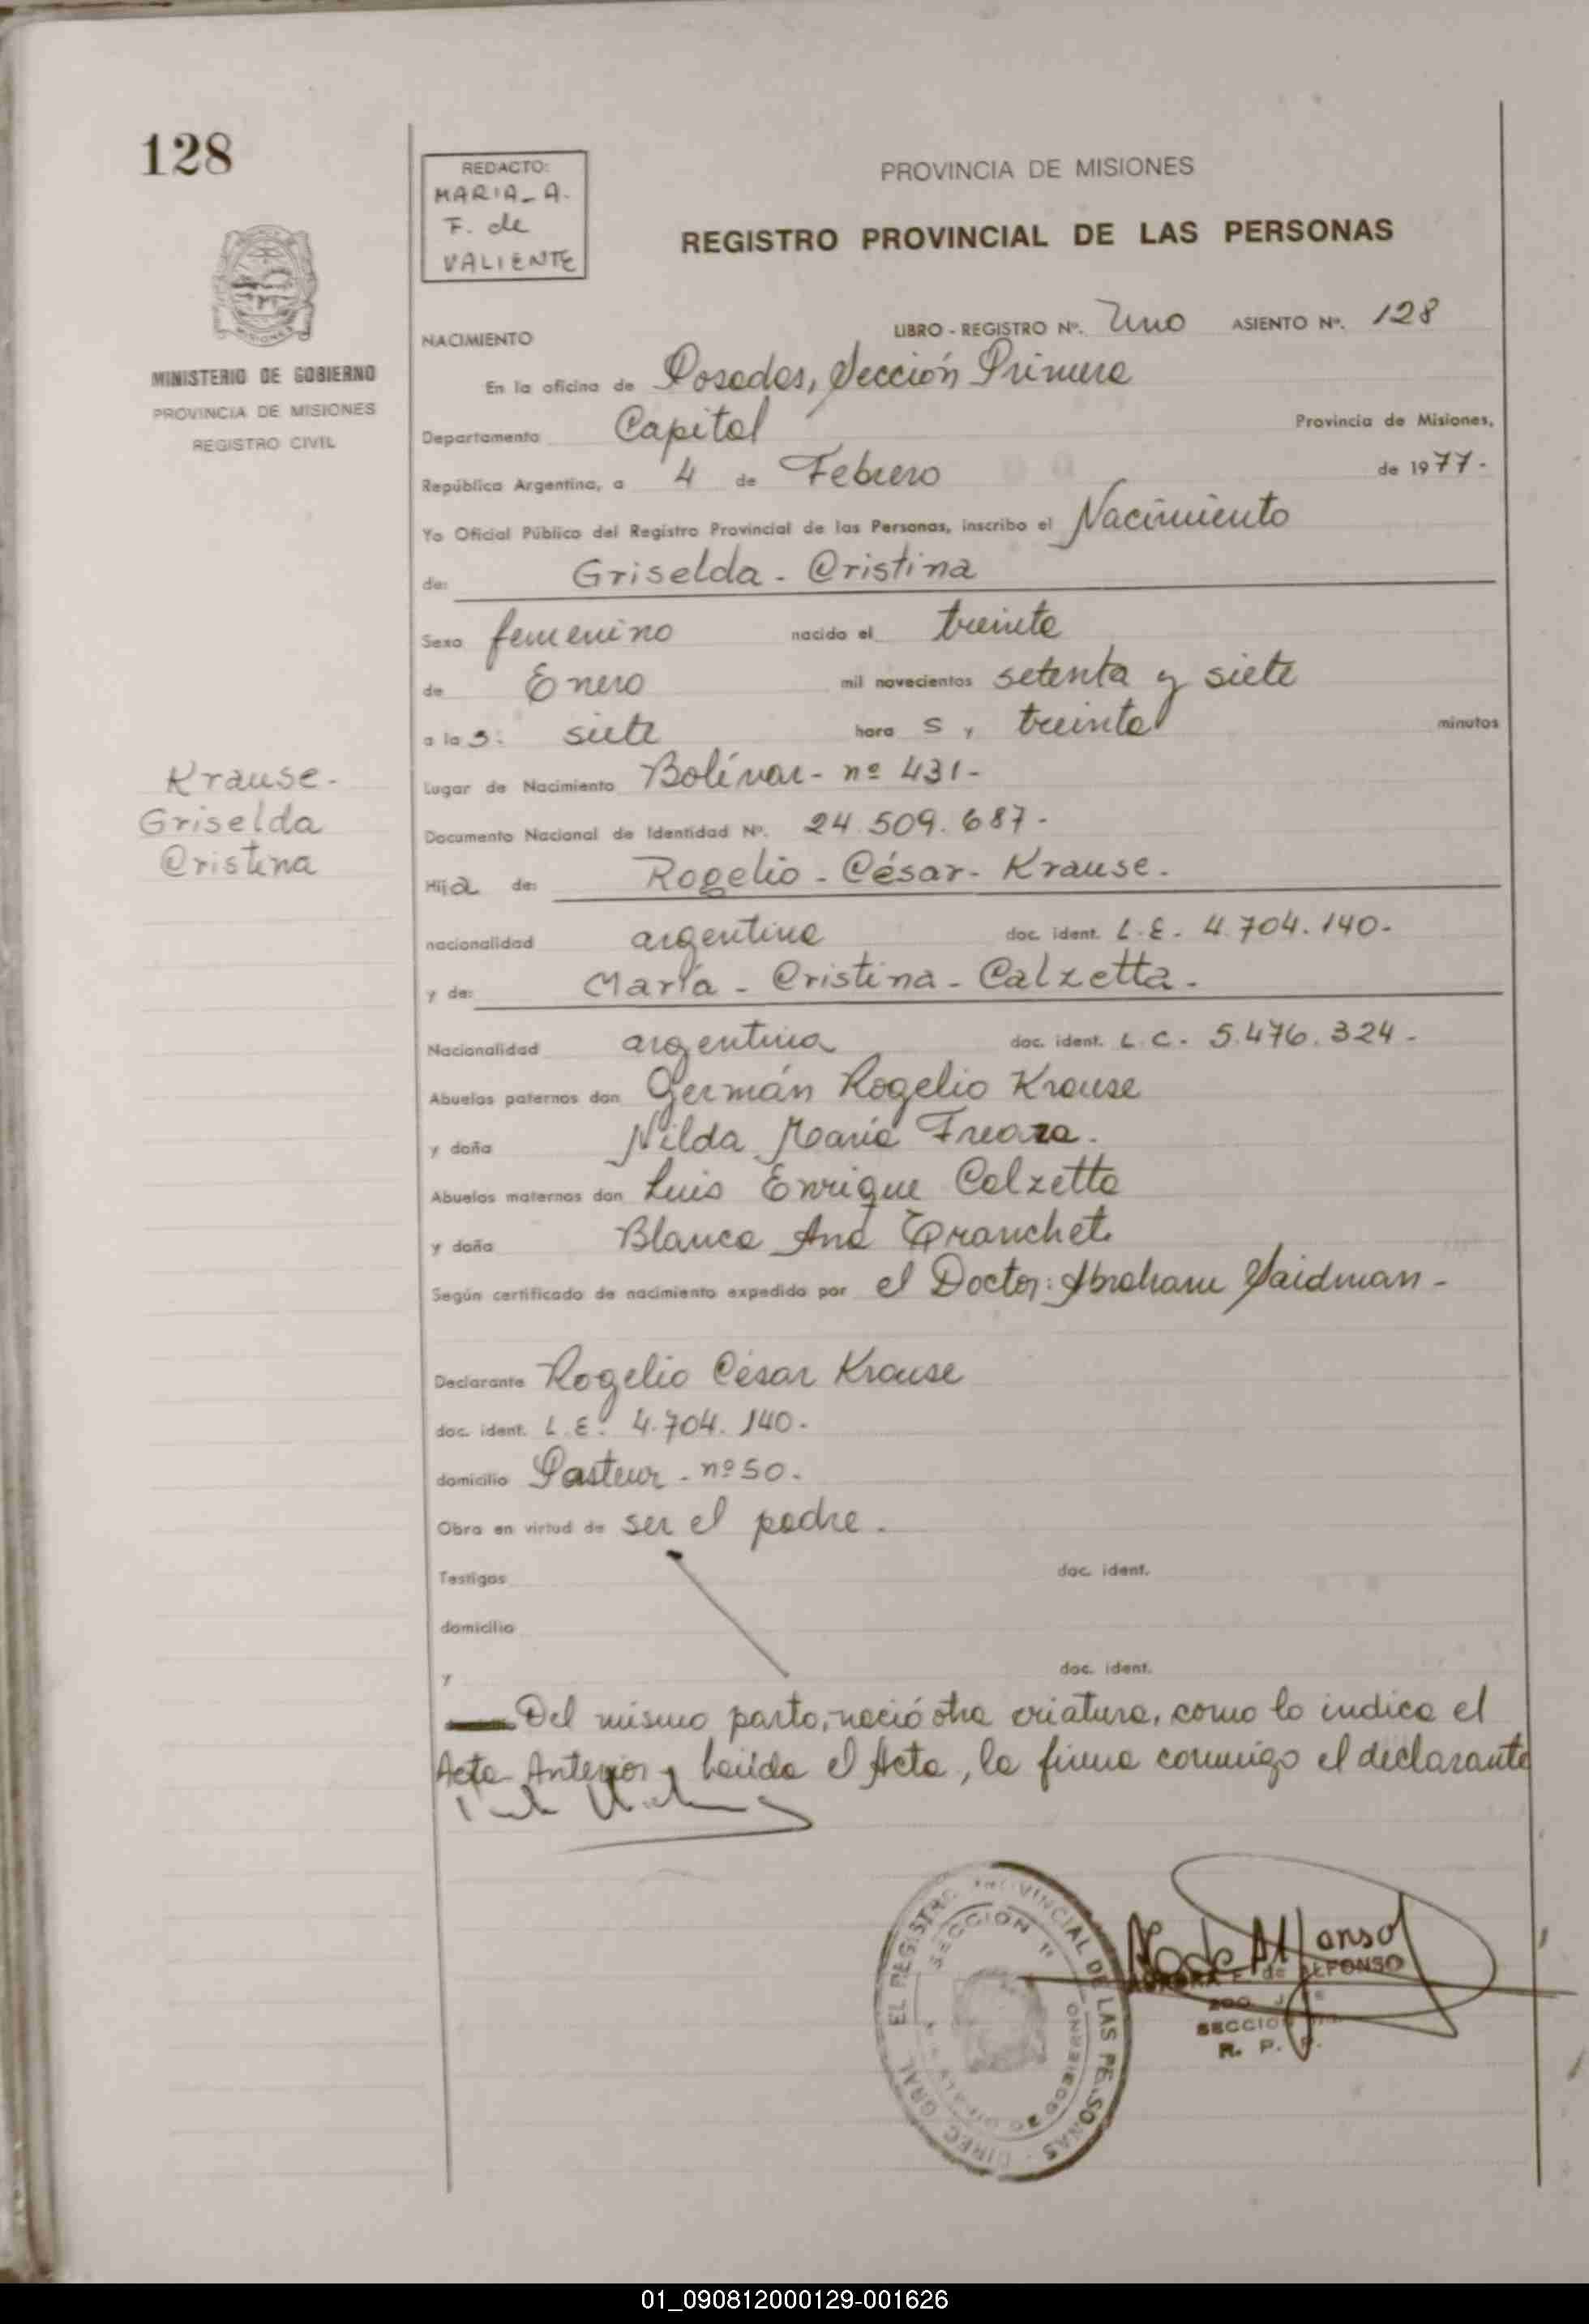 128
REDACTO:
MARIA - A.
F. de
VALIENTE
PROVINCIA DE MISIONES
REGISTRO PROVINCIAL DE LAS PERSONAS
MINISTERIO DE GOBIERNO
PROVINCIA DE MISIONES
REGISTRO CIVIL
NACIMIENTO LIBRO - REGISTRO Nº. Uno ASIENTO Nº. 128
En la oficina de Posadas, Sección Primera
Departamento Capital Provincia de Misiones,
República Argentina, a 4 de Febrero de 1977-
Yo Oficial Público del Registro Provincial de las Personas, inscribo el Nacimiento
de: Griselda - Cristina
Sexo femenino nacido el treinta
de Enero mil novecientos setenta y siete
a las: siete horas y treinta minutos
Lugar de Nacimiento Bolívar - nº 431-
Documento Nacional de Identidad Nº. 24.509.687-
Krause -
Griselda
Cristina
Hija de: Rogelio - César - Krause.
nacionalidad argentina doc. ident. L.E. 4.704.140-
y de: María - Cristina - Calzetta -
Nacionalidad argentina doc. ident. L.C. 5.476.324-
Abuelos paternos don Germán Rogelio Krause
y doña Nilda María
Abuelos maternos don Luis Enrique Calzetta
y doña Blanca Ana Tranchet.
Según certificado de nacimiento expedido por el Doctor: Abraham Saidman -
Declarante Rogelio César Krause
doc. ident. L.E. 4.704.140-
domicilio Pasteur - nº 50.
Obra en virtud de ser el padre.
Testigos doc. ident.
domicilio
y doc. ident.
Del mismo parto, nació otra criatura, como lo indica el
Acta Anterior y leída el Acta, la firma conmigo el declarante
EL REGISTRO PROVINCIAL DE LAS PERSONAS - DIREC. GRAL
SECCION 1º
de Alfonso
AURORA F. de ALFONSO
SECCION
R. P. P.
01_090812000129-001626